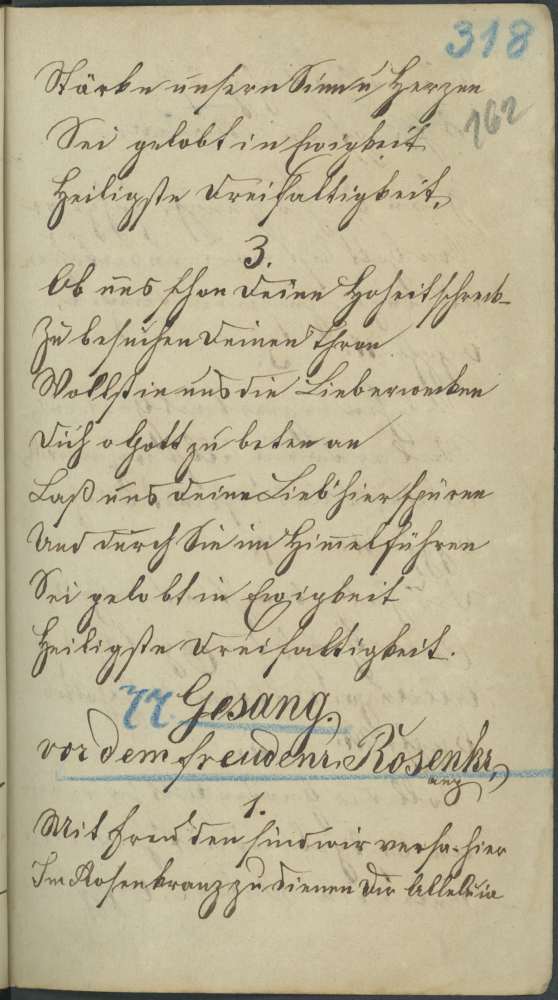 318
162
Stärke unsern Sinn u Herzen
Sei gelobt in Ewigkeit
Heiligste Dreifaltigkeit.
3.
Ob uns schon deine Hoheit schreck-
Zu besuchen deinen Thron
Wollst in uns die Lieb erwecken
Dich o Gott zu beten an
Laß uns deine Lieb' hier spüren
Und durch Sie im Himel führen
Sei gelobt in Ewigkeit
Heiligste Dreifaltigkeit.
77 Gesang.
vor dem freudenr. Rosenkr.
anz
1.
Mit Freuden sind wir versa. hier
Im Rosenkranz zu dienen dir Alleluia